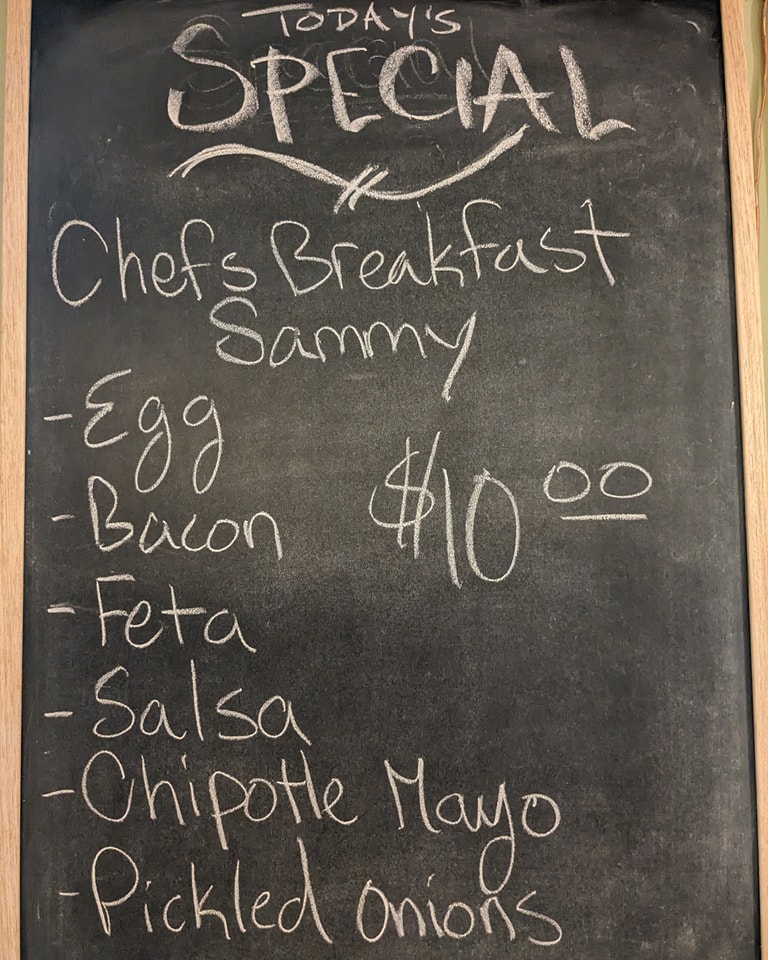 TODAY'S
SPECIAL
Chefs Breakfast
Sammy
- Egg
- Bacon
$10 00
- Feta
- Salsa
- Chipotle Mayo
- Pickled onions